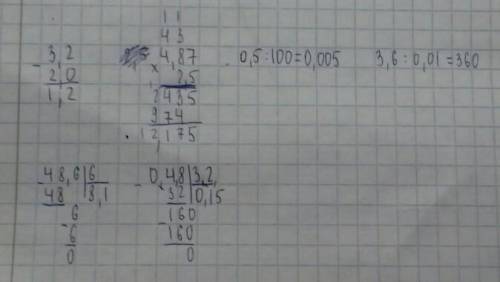 - 3,2
2 0
1,2
1 1
4 3
4,87
× 2,5
2435
974
12,175
0,5 : 100 = 0,005
3,6 : 0,01 = 360
48,6|6
48 |8,1
- 6
6
0
- 0,4,8|3,2,
32 |0,15
- 160
160
0